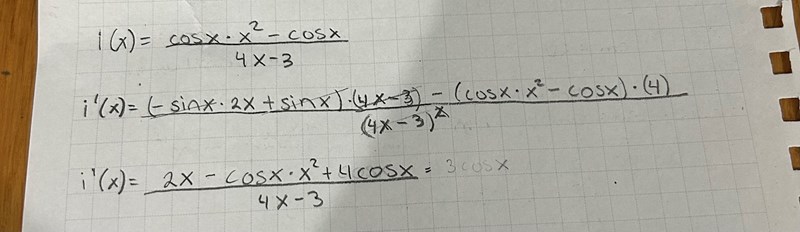 i(x) = (cosx · x² - cosx) / (4x-3)
i'(x) = ((-sinx · 2x + sinx) · (4x-3) - (cosx · x² - cosx) · (4)) / (4x-3)²
i'(x) = (2x - cosx · x² + 4cosx) / (4x-3) = 3cosx